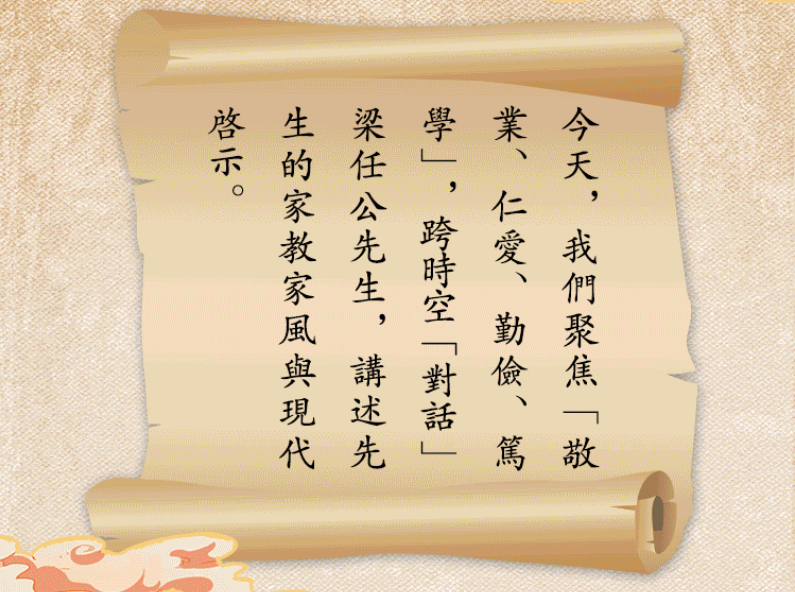 今天，我們聚焦「敬
業、仁愛、勤儉、篤
學」，跨時空「對話」
梁任公先生，講述先
生的家教家風與現代
啓示。